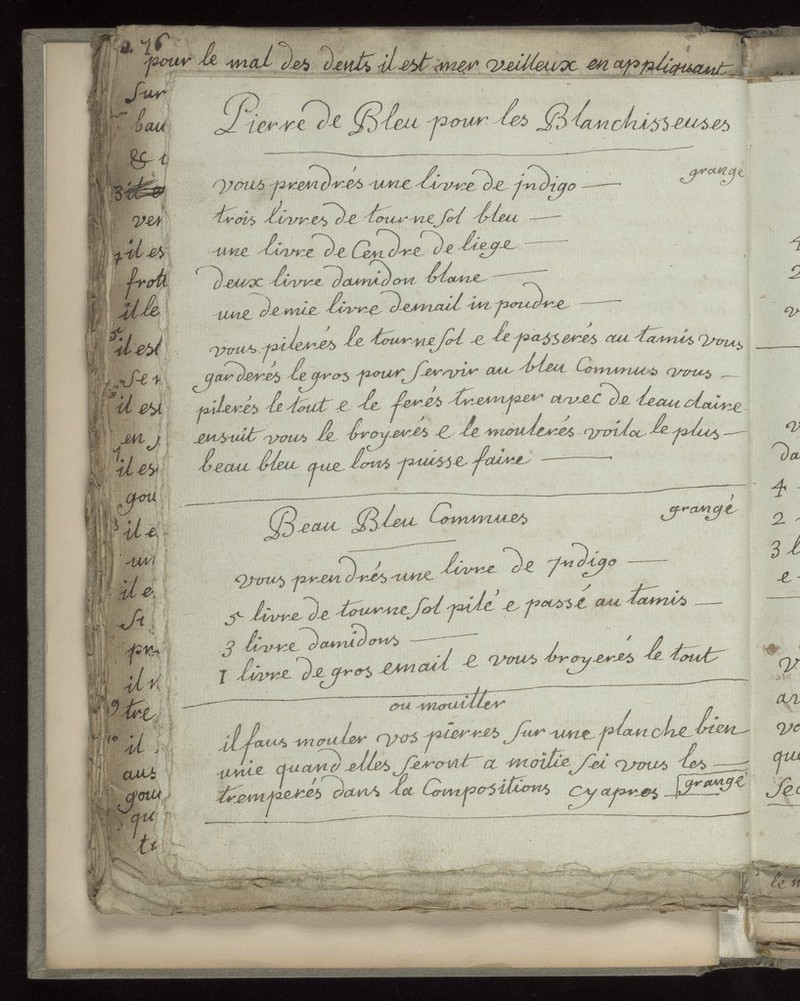 76
pour le mal des dents il est mer veilleux en appliquant
Sur
bau
& i
ver
il es
frott
il le
il est
Ser
il est
en
il es
gou
il e
un
il e
Si
pr
il
tre
il
aus
gour
qu
te
Pierre de Bleu pour les Blanchisseuses
grangé
vous prendrés une livre de jndigo
trois livres de tour ne sol bleu
une livre de Cendre de liege
deux livre damidon blanc
une demie livre demail in poudre
vous pilerés le tournesol e le passerés au tamis vous
garderés le gros pour servir au bleu Commus vous
pilerés le tout e le ferés tremper avec de leau claire
ensuit vous le broyerés e le moulerés voila le plus
beau bleu que lons puisse faire
Beau Bleu Commues
grangé
vous prendrés une livre de jndigo
5 livre de tourne sol pilé e passé au tamis
3 livre damidons
1 livre de gros email e vous broyerés le tout
ou mouiller
il faus mouler vos pierres sur une planche bien
unie quand elles seront a moitie sei vous les
tremperés dans la Compositions cy apres grangé
4
2
v
da
4
2
3 l
e
v
au
vo
que
sec